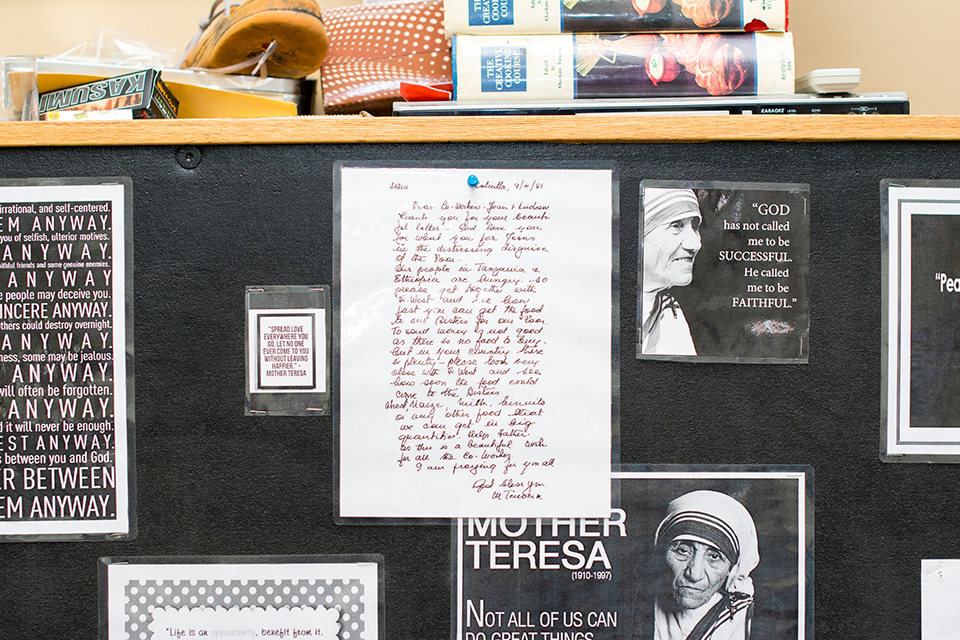 THE
CREATIVE
COOKING
COURSE
THE
CREATIVE
COOKING
COURSE
KASUMI
KARAOKE LEVEL ECHO
irrational, and self-centered.
EM ANYWAY.
you of selfish, ulterior motives.
ANYWAY.
faithful friends and some genuine enemies.
ANYWAY
people may deceive you.
SINCERE ANYWAY.
others could destroy overnight.
ANYWAY.
ness, some may be jealous.
ANYWAY.
will often be forgotten.
ANYWAY.
d it will never be enough.
EST ANYWAY.
s between you and God.
ER BETWEEN
EM ANYWAY.
"SPREAD LOVE
EVERYWHERE YOU
GO. LET NO ONE
EVER COME TO YOU
WITHOUT LEAVING
HAPPIER." -
MOTHER TERESA
Calcutta, 9/4/81
Dear Co-Workers - Joan & Andrew
Thank you for your beauti
ful letter - God love you
for what you for Jesus
in the distressing disguise
of the Poor -
Our people in Tanzania &
Ethiopia are hungry - so
please get together with
Fr West and see how
fast you can get the food
to our Sisters for our Poor.
To send money is not good
as there is no food to buy -
but in your country there
is plenty - please look very
close with Fr West and see
how soon the food could
come to the Sisters
Wheat, Maize, milk, biscuits
or any other food that
we can get in big
quantities. Help Father
as this is a beautiful work
for all the Co-Workers.
I am praying for you all
God bless you
M Teresa m
"GOD
has not called
me to be
SUCCESSFUL.
He called
me to be
FAITHFUL."
"Pea
MOTHER
TERESA
(1910-1997)
NOT ALL OF US CAN
DO GREAT THINGS
"Life is an opportunity, benefit from it.